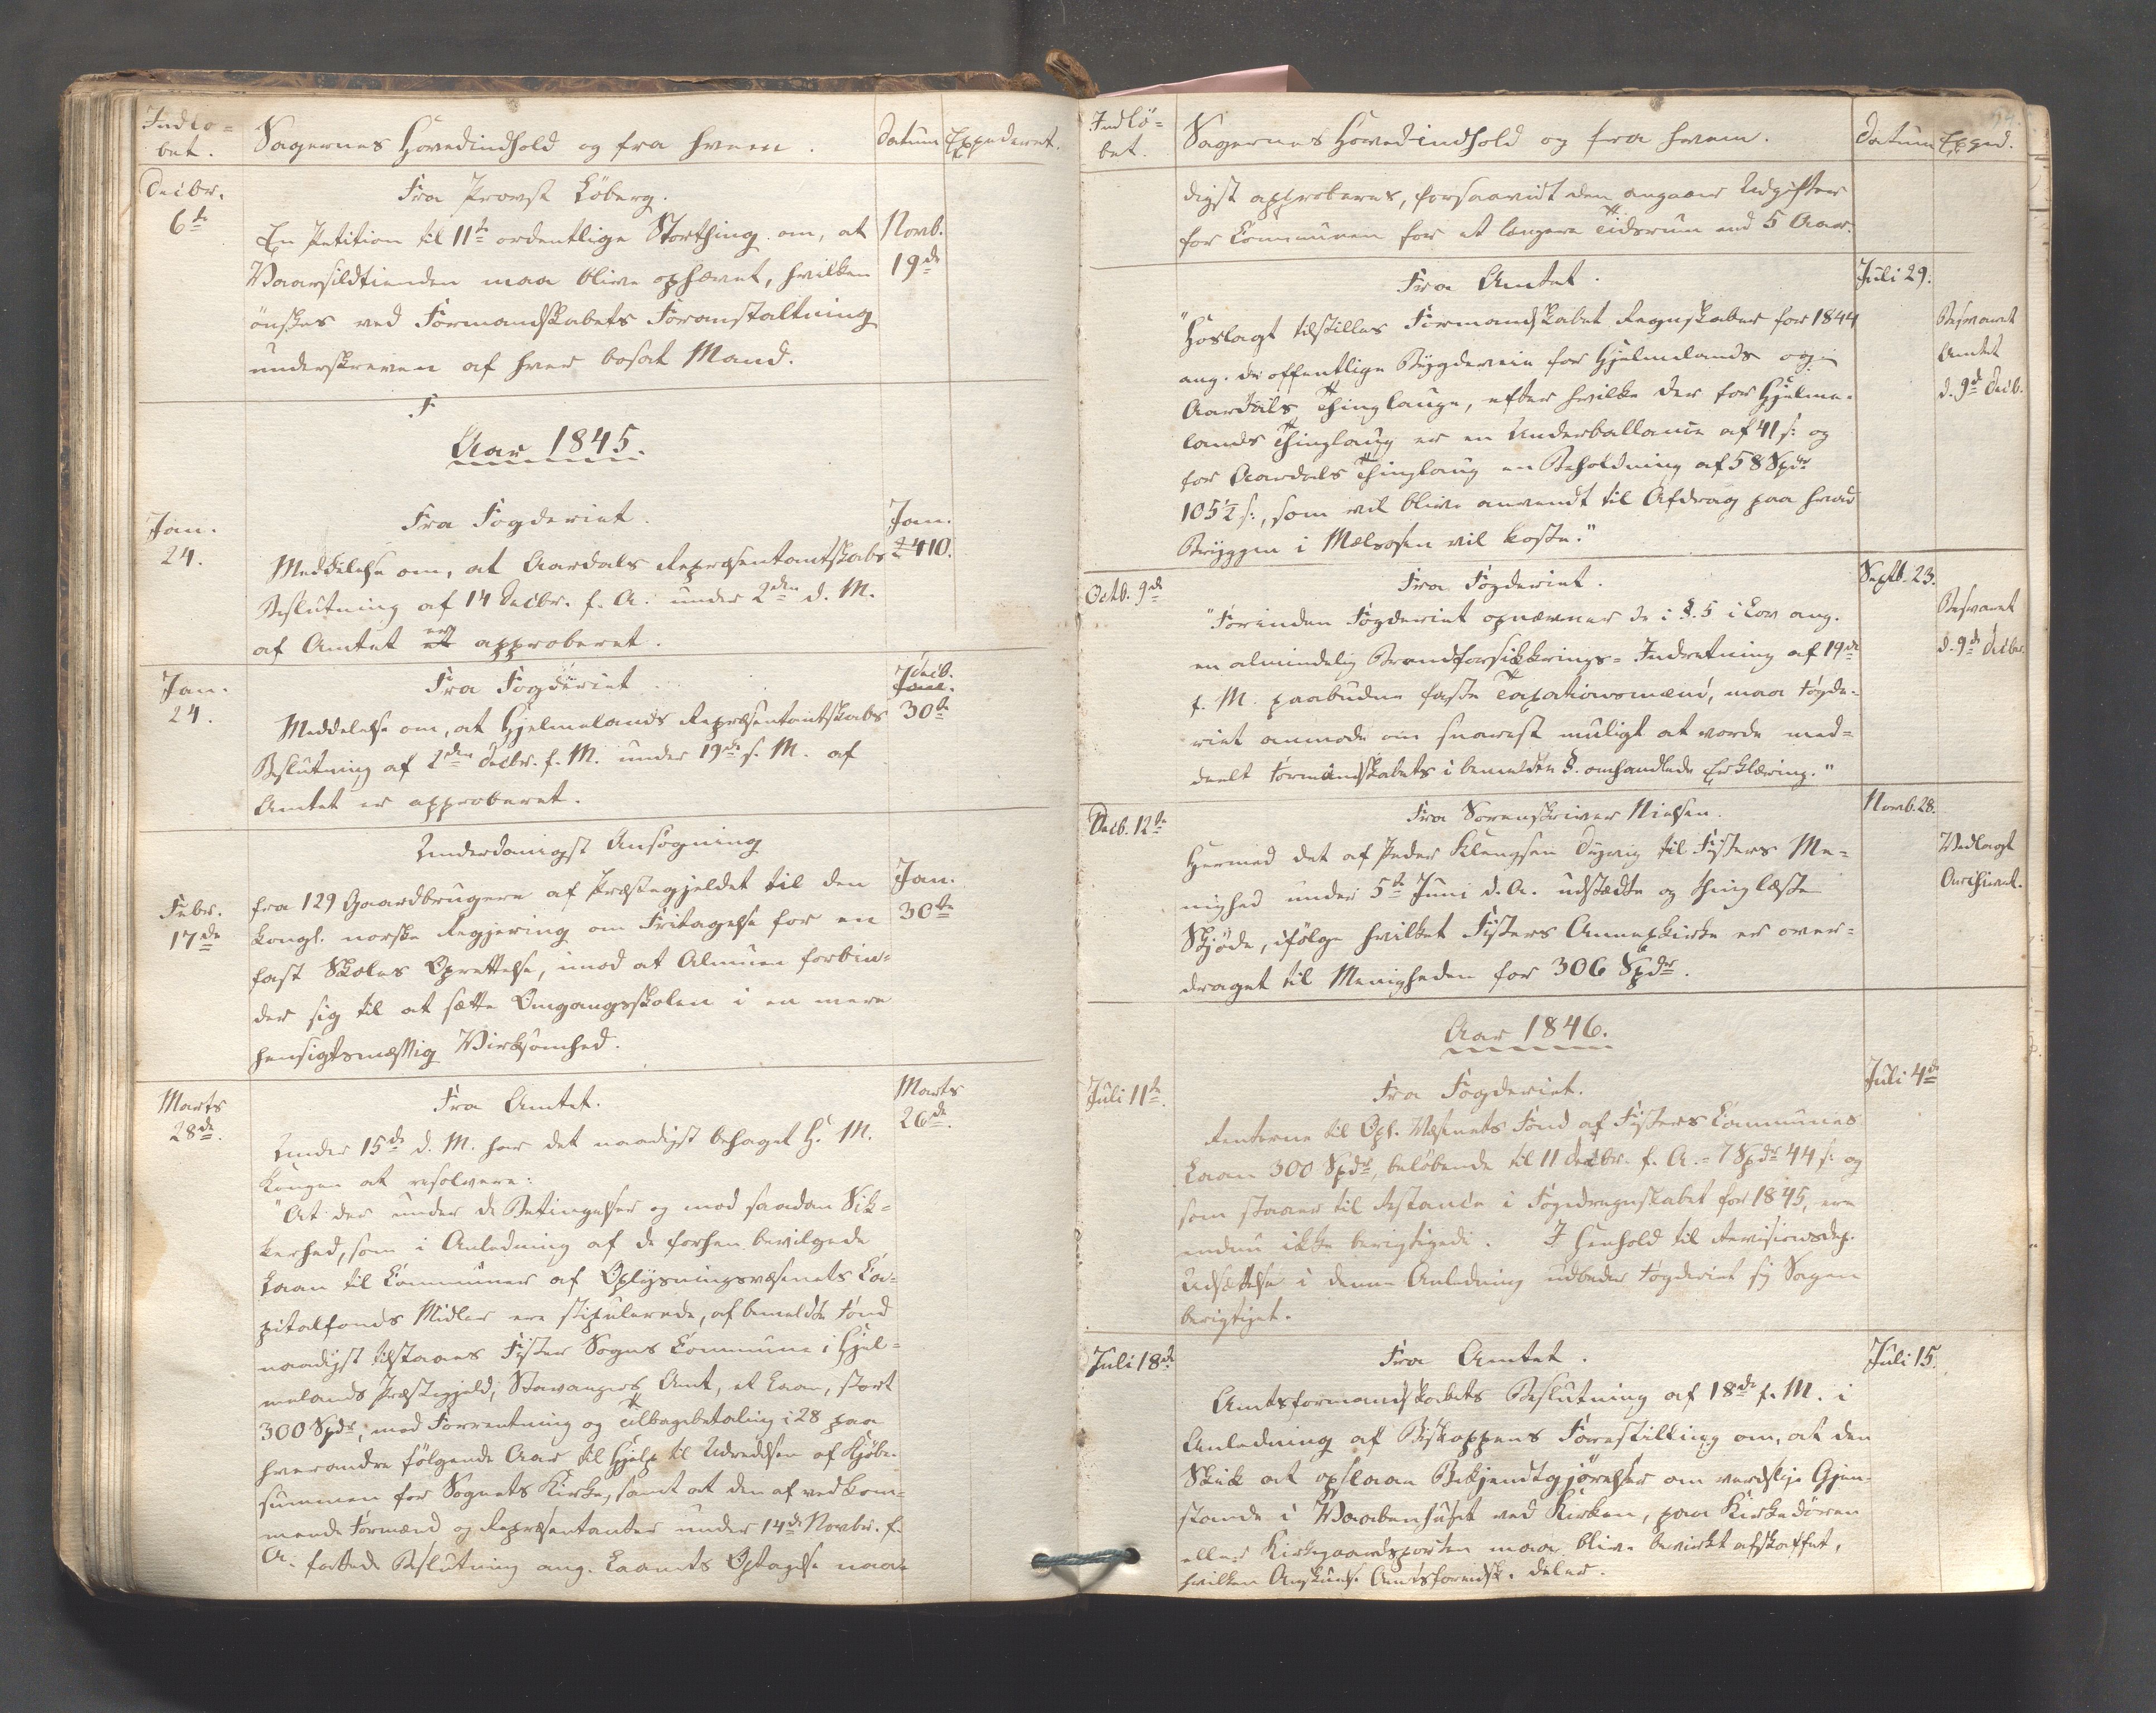 Indlö=
bet.
Sagernes Hovedindhold og fra hvem.
Datum
Expederet.
Decbr.
6te
Fra Provst Köberg.
En Petition til 11te ordentlige Storthing om, at
Vaarsildtienden maa blive ophævet, hvilken
önskes ved Formandskabets Foranstaltning
underskreven af hver bosat Mand.
Novb.
19de
F
Aar 1845.
Jan.
24.
Fra Fogderiet.
Meddelelse om, at Aardals Repræsentantskabs
Beslutning af 14 Decbr. f. A. under 2den d. M.
af Amtet er approberet.
Jan.
10.
Jan.
24.
Fra Fogderiet.
Meddelelse om, at Hjelmelands Repræsentantskabs
Beslutning af 2den Decbr. f. M. under 19de s. M. af
Amtet er approberet.
Decb.
30te
Underdanigst Ansögning
Febr.
17de
fra 129 Gaardbrugere af Præstegjeldet til den
kongl. norske Regjering om Fritagelse for en
fast Skoles Oprettelse, imod at Almuen forbin-
der sig til at sætte Omgangsskolen i en mere
hensigtsmæssig Virksomhed.
Jan.
30te
Marts
28de.
Fra Amtet.
Under 15de d. M. har det naadigst behaget H. M.
Kongen at resolvere:
"At der under de Betingelser og mod saadan Sik=
kerhed, som i Anledning af de forhen bevilgede
Laan til Communer af Oplysningsvæsenets Ca-
pitalfonds Midler ere stipulerede, af bemeldte Fond
naadigst tilstaaes Fister Sogns Commune i Hjel=
melands Præstegjeld, Stavangers Amt, et Laan, stort
300 Spdr, mod Forrentning og Tilbagebetaling i 28 paa
hverandre fölgende Aar til Hjelp til Udredelsen af Kjöbe-
summen for Sognets Kirke, samt at den af vedkom=
mende Formænd og Repræsentanter under 14de Novbr. f.
A. fattede Beslutning ang. Laanets Optagelse naa=
Marts
26de.
Indlö=
bet.
Sagernes Hovedindhold og fra hvem.
Datum
Exped.
digst approberes, forsaavidt den angaaer Udgifter
for Communen for et længere Tidsrum end 5 Aar.
Fra Amtet.
Juli 29.
"Hoslagt tilstilles Formandskabet Regnskaber for 1844
ang. de offentlige Bygdeveie for Hjelmelands og
Aardals Thinglauge, efter hvilke der for Hjelme-
lands Thinglaug er en Underballance af 41 s: og
for Aardals Thinglaug en Beholdning af 58 Spdr
105½ s:, som vil blive anvendt til Afdrag paa hvad
Bryggen i Mælsosen vil koste."
Besvaret
Amtet
d. 9de Decb.
Octb. 9de
Fra Fogderiet.
Septb. 23.
"Forinden Fogderiet opnævner de i §. 5 i Lov ang.
en almindelig Brandforsikkrings=Indretning af 19de
f. M. paabudne faste Taxationsmænd, maa Fogde-
riet anmode om snarest muligt at vorde med=
deelt Formandskabets i bemeldte §. omhandlede Erklæring."
Besvaret
d. 9de Decbr.
Decb. 12te
Fra Sorenskriver Nielsen.
Novb. 28.
Hermed det af Peder Klengsen Dysvig til Fisters Me=
nighed under 5te Juni d. A. udstædte og thinglæste
Skjöde, ifölge hvilket Fisters Annexkirke er over=
draget til Menigheden for 306 Spdr.
Vedlagt
Archivet.
Aar 1846.
Juli 11te.
Fra Fogderiet.
Juli 4de
Renterne til Opl. Væsenets Fond af Fisters Communes
Laan 300 Spdr, belöbende til 11 Decbr. f. A. = 7 Spdr 44 s: og
som staaer til Restance i Fogedregnskabet for 1845, ere
endnu ikke berigtigede. I Henhold til Revisionsdep.
Udsættelse i denne Anledning udbeder Fogderiet sig Sagen
berigtiget.
Juli 18de
Fra Amtet.
Juli 15.
Amtsformandskabets Beslutning af 18de f. M. i
Anledning af Biskoppens Forestilling om, at den
Skik at opslaae Bekjendtgjörelser om verdslige Gjen-
stande i Vaabenhuset ved Kirken, paa Kirkedören
eller Kirkegaardsporten maa blive bevirkt afskaffet,
hvilken Anskuelse Amtsformdsk. deler.